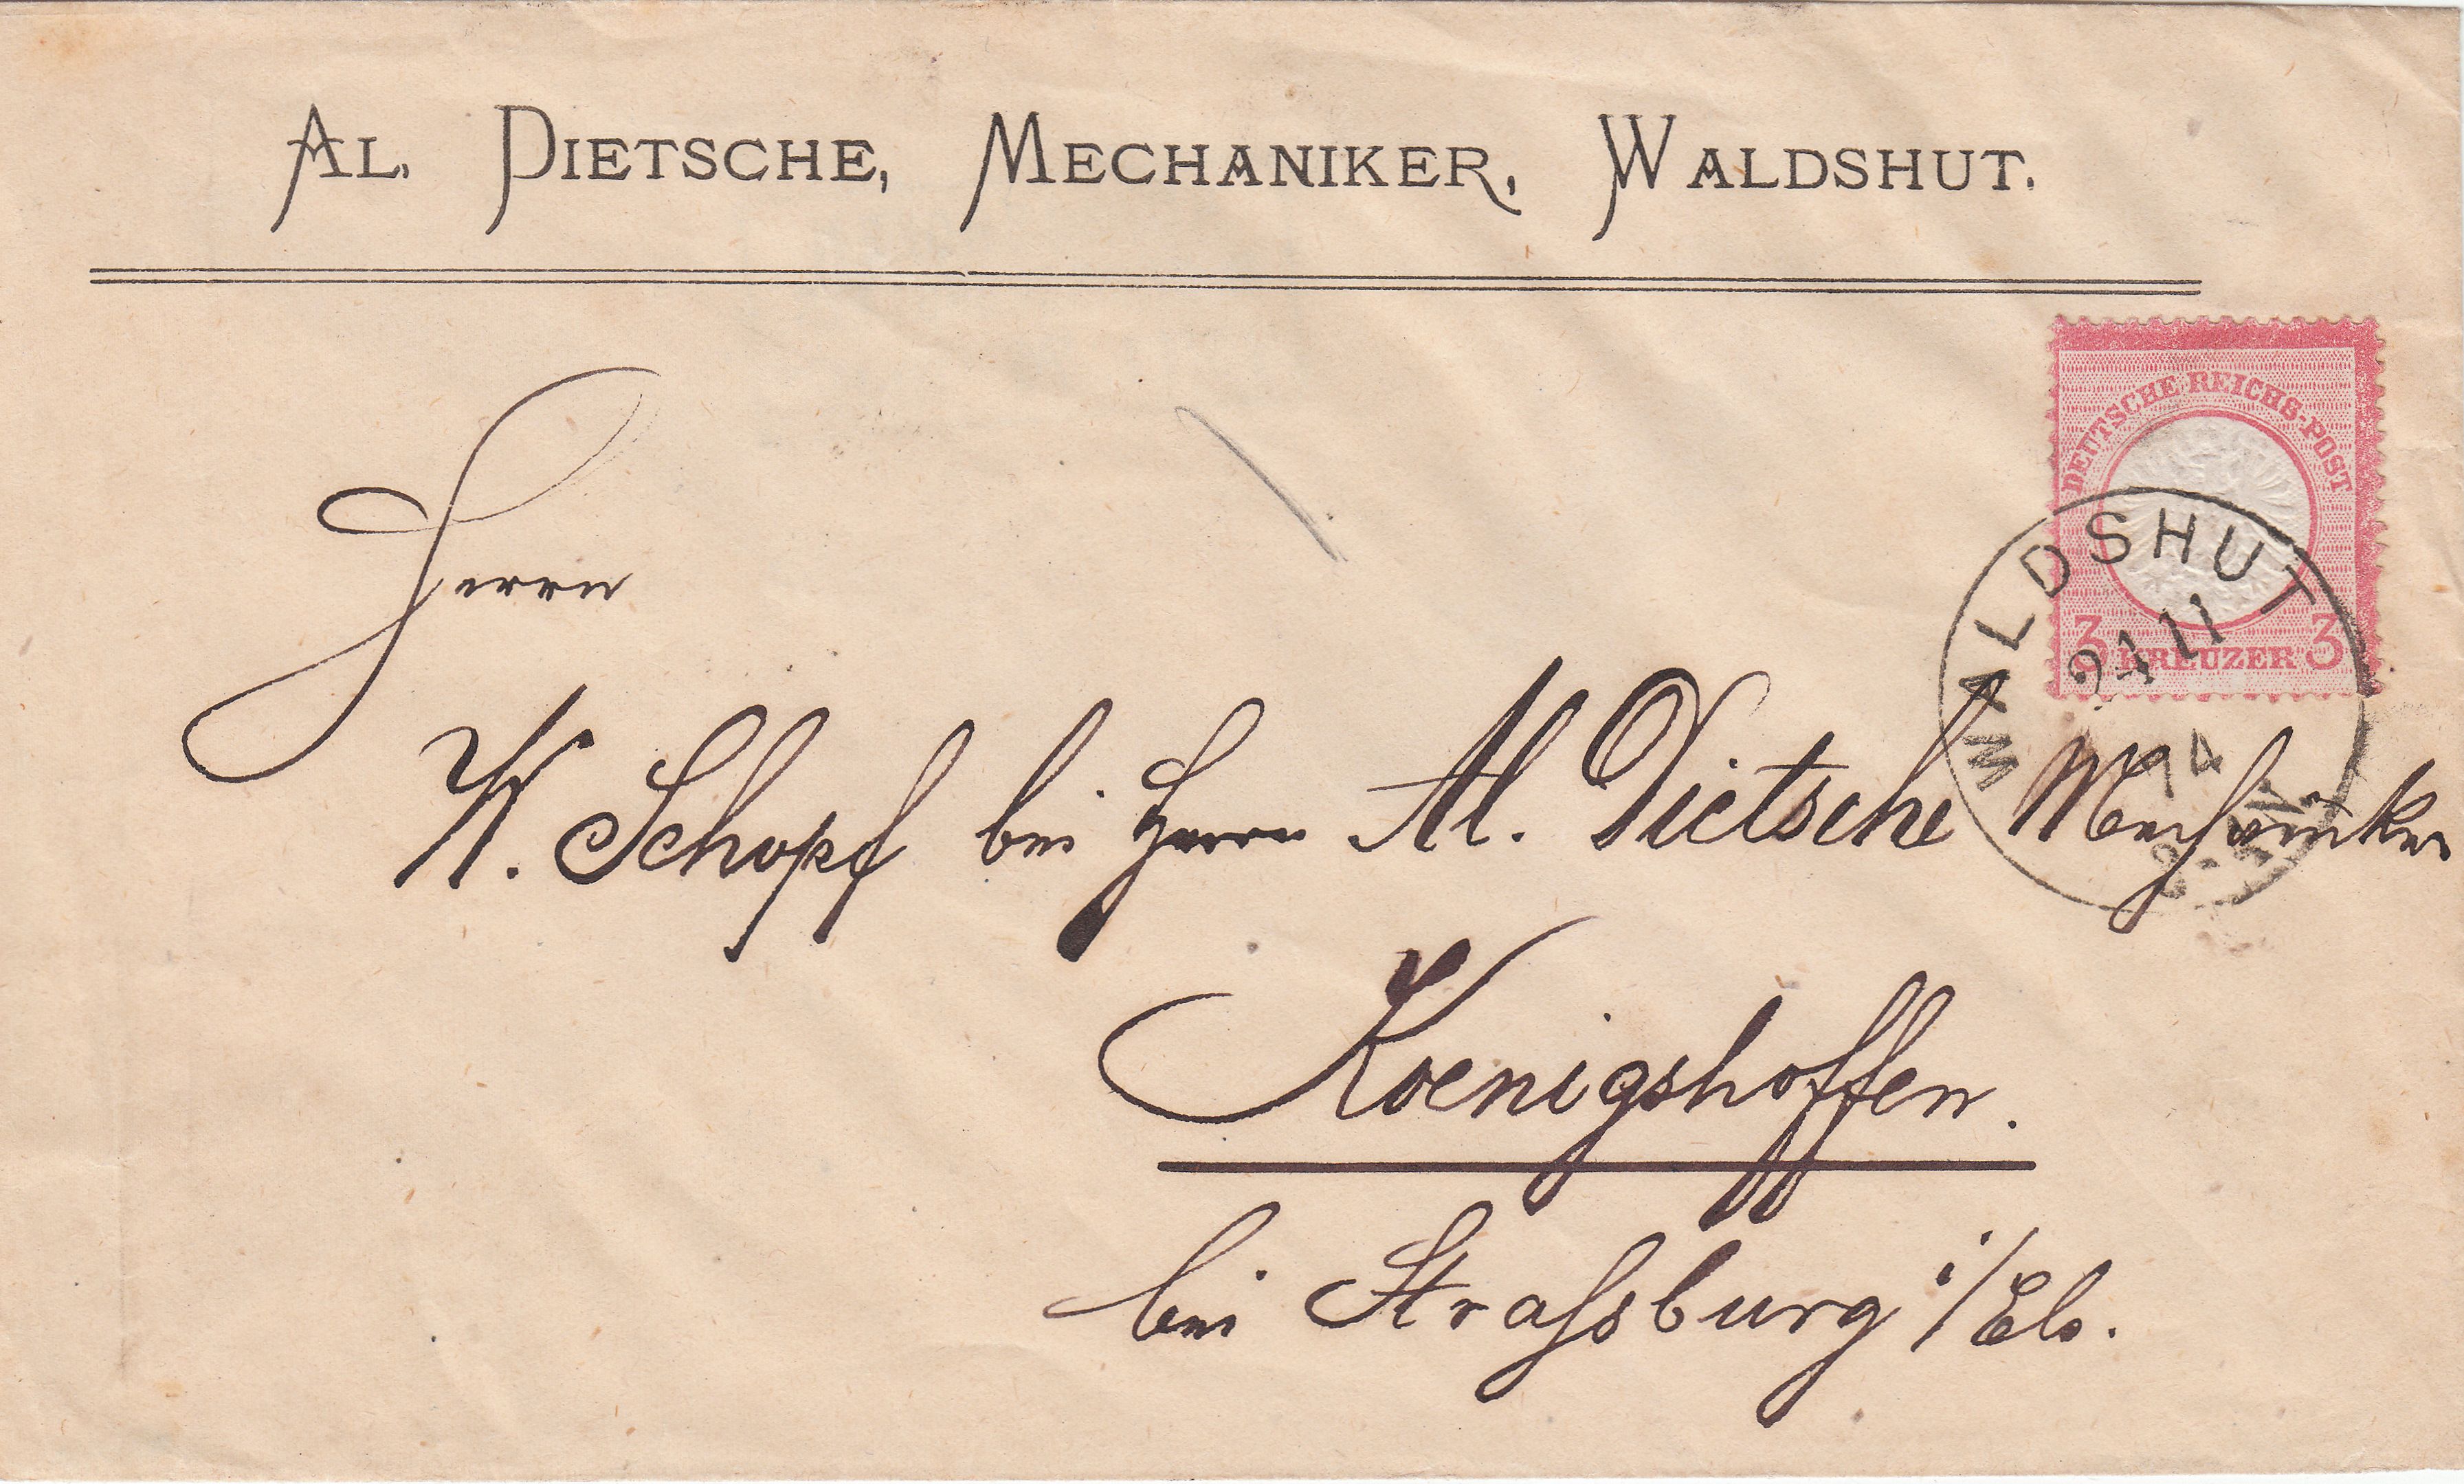 AL. DIETSCHE, MECHANIKER, WALDSHUT.
DEUTSCHE REICHS-POST
3 KREUZER 3
WALDSHUT
24 11
74
Herrn
W. Schopf bei Herrn Al. Dietsche Mechaniker
Koenigshoffen.
bei Strassburg i/Els.